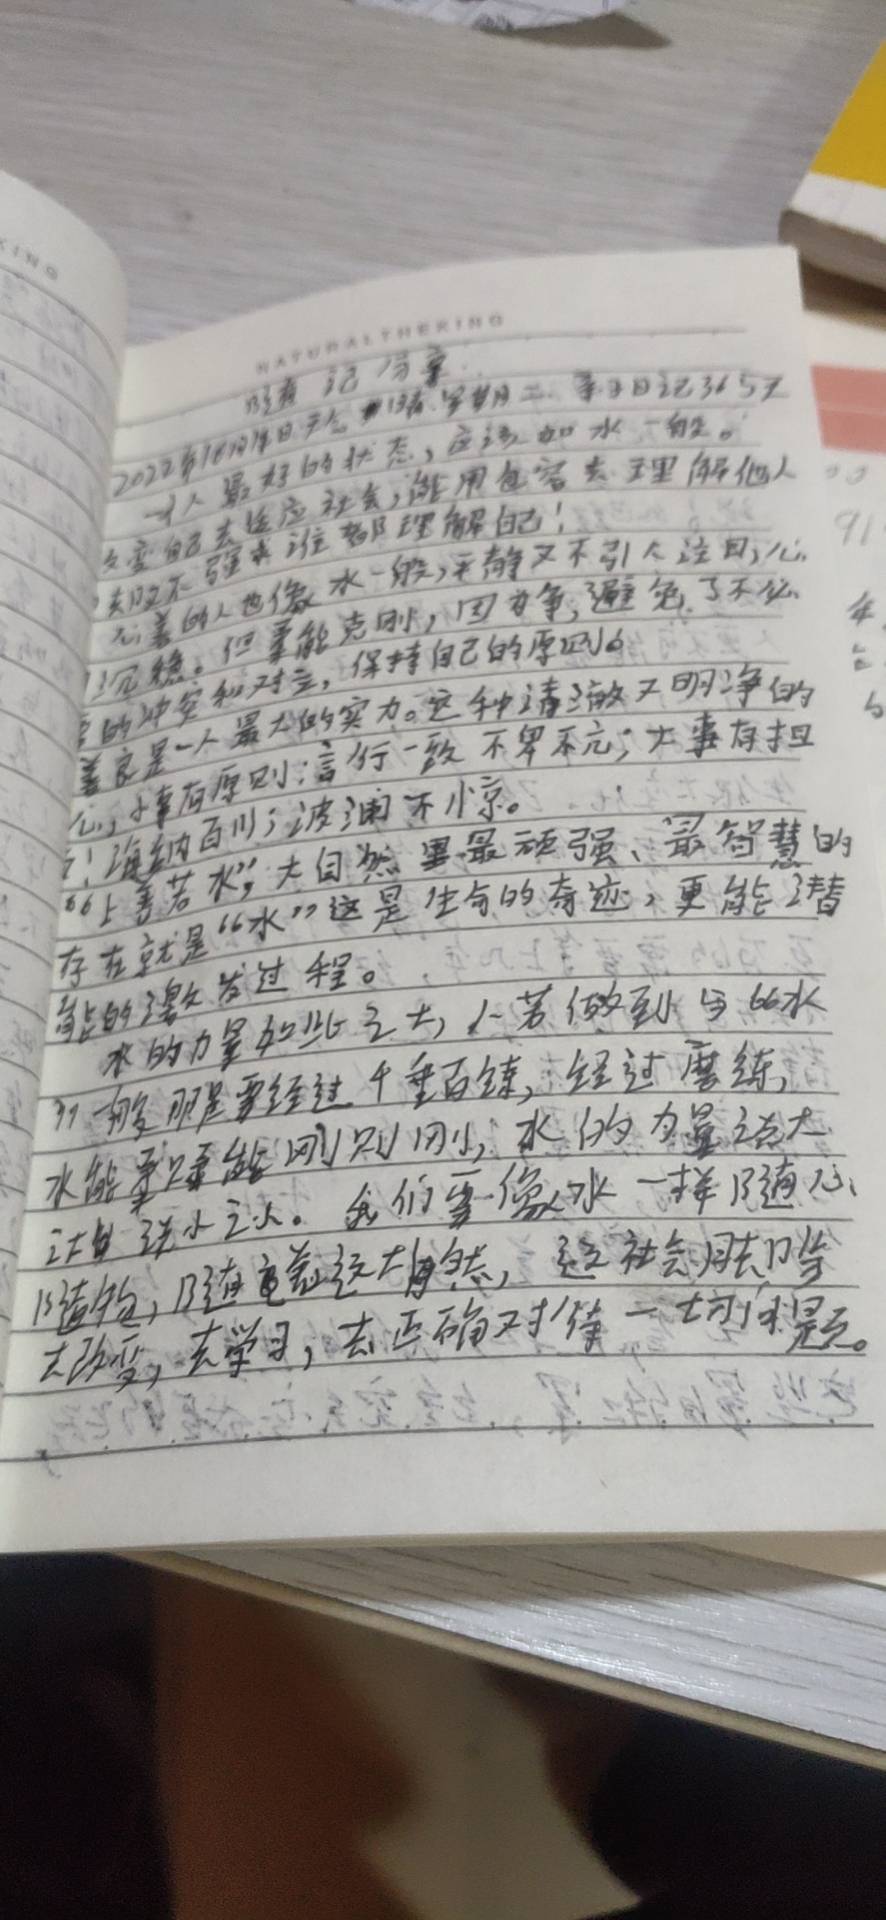 KING
NATURALTHEKING
随记文章
2022年10月 日 天 晴 星期二 日记365天
一个人最好的状态,应该如水一般。
改变自己去适应社会,能用包容去理解他人
不强求谁都理解自己!
心善的人也像水一般,平静又不引人注目,心
沉稳。但柔能克刚,因为争,避免了不必
要的冲突和对立,保持自己的原则。
善良是一人最大的实力。这种清澈又明净的
心,小事有原则;言行一致 不卑不亢;大事有担
!海纳百川;波澜不惊。
“上善若水”,大自然里最顽强、最智慧的
存在就是“水”这是生命的奇迹,更能潜
能的激发过程。
水的力量如此之大,人若做到与“水
”一般那是要经过千垂百锤,经过磨练,
水能柔则柔能刚则刚,水的力量说大
之大说小之小。我们要像水一样随心、
随物,随着这大自然,这社会
去改变,去学习,去正确对待一切问题。
91